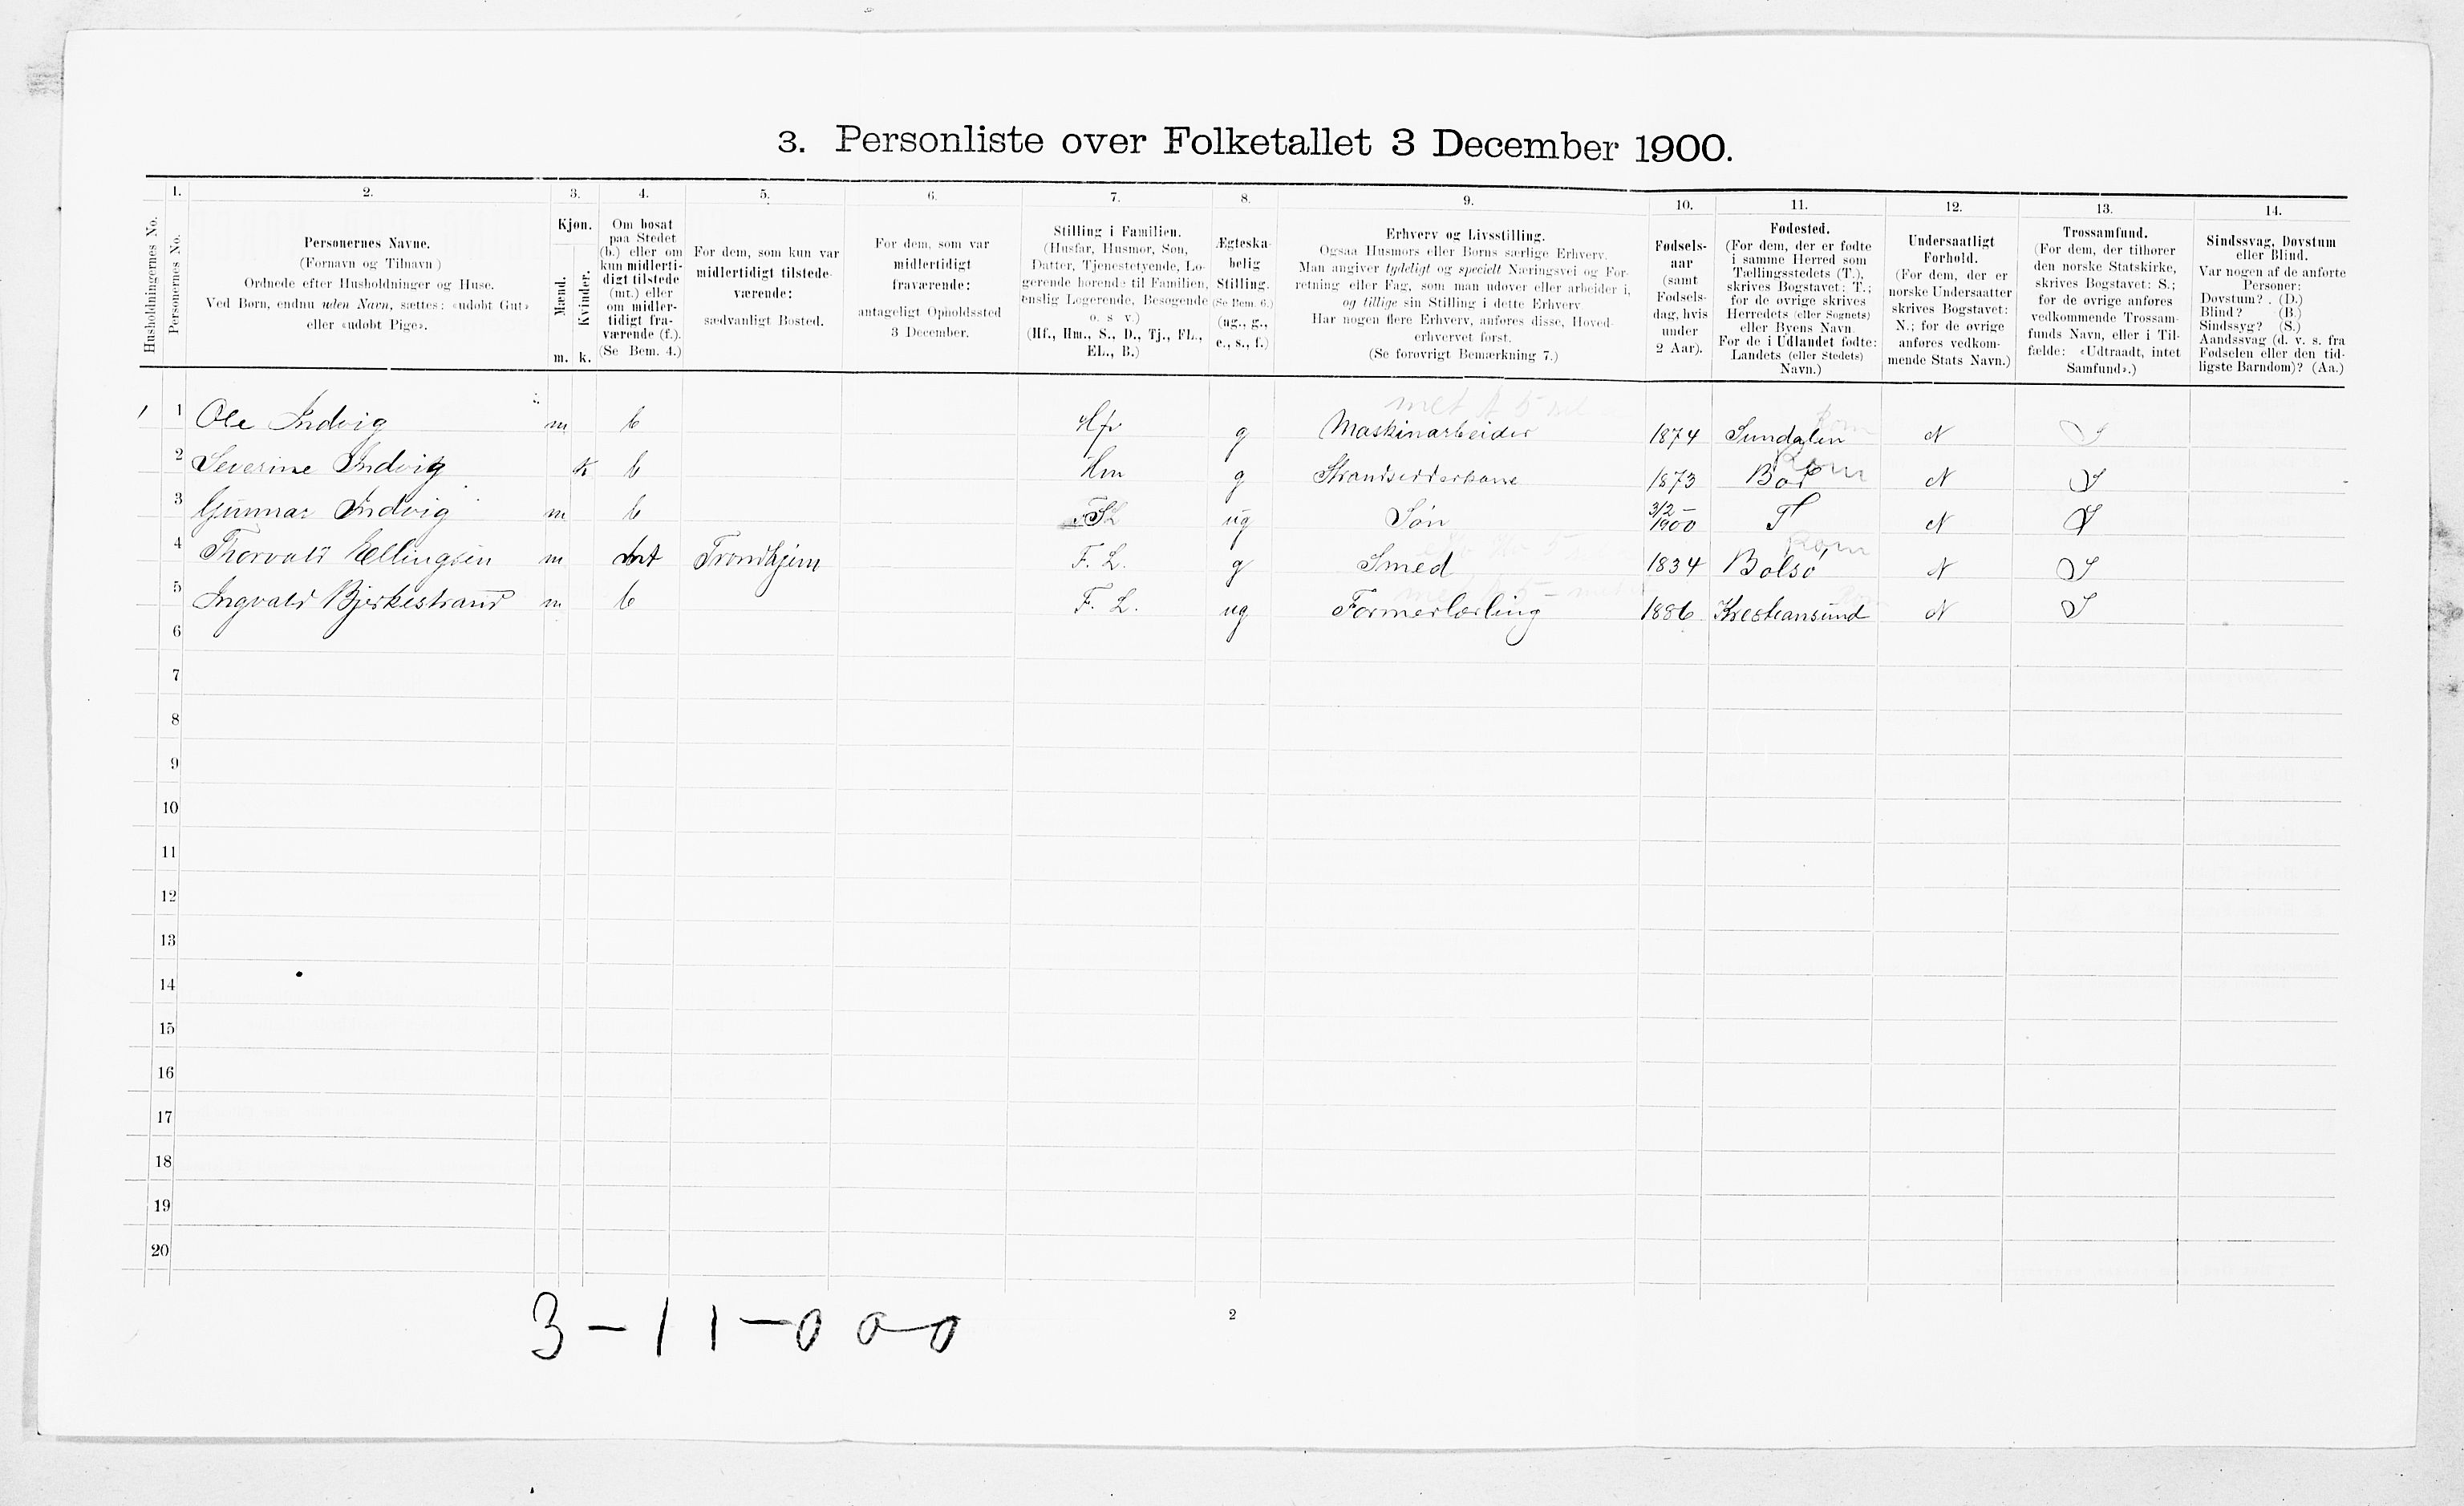 3. Personliste over Folketallet 3 December 1900.
Husholdningernes No.
1.
Personernes No.
2.
Personernes Navne.
(Fornavn og Tilnavn)
Ordnede efter Husholdninger og Huse.
Ved Børn, endnu uden Navn, sættes: «udøbt Gut»
eller «udøbt Pige».
3.
Kjøn.
Mænd.
Kvinder.
m. k.
4.
Om bosat
paa Stedet
(b.) eller om
kun midlerti-
digt tilstede
(mt.) eller
om midler-
tidigt fra-
værende (f.).
(Se Bem. 4.)
5.
For dem, som kun var
midlertidigt tilstede-
værende:
sædvanligt Bosted.
6.
For dem, som var
midlertidigt
fraværende:
antageligt Opholdssted
3 December.
7.
Stilling i Familien.
(Husfar, Husmor, Søn,
Datter, Tjenestetyende, Lo-
gerende hørende til Familien,
enslig Logerende, Besøgende
o. s. v.)
(Hf., Hm., S., D., Tj., FL.,
EL., B.)
8.
Ægteska-
belig
Stilling.
(Se Bem. 6.)
(ug., g.,
e., s., f.)
9.
Erhverv og Livsstilling.
Ogsaa Husmors eller Børns særlige Erhverv.
Man angiver tydeligt og specielt Næringsvei og For-
retning eller Fag, som man udøver eller arbeider i,
og tillige sin Stilling i dette Erhverv
Har nogen flere Erhverv, anføres disse, Hoved-
erhvervet først.
(Se forøvrigt Bemærkning 7.)
10.
Fødsels-
aar
(samt
Fødsels-
dag, hvis
under
2 Aar).
11.
Fødested.
(For dem, der er fødte
i samme Herred som
Tællingsstedets (T.),
skrives Bogstavet: T.;
for de øvrige skrives
Herredets (eller Sognets)
eller Byens Navn.
For de i Udlandet fødte:
Landets (eller Stedets)
Navn.)
12.
Undersaatligt
Forhold.
(For dem, der er
norske Undersaatter
skrives Bogstavet:
N.; for de øvrige
anføres vedkom-
mende Stats Navn.)
13.
Trossamfund.
(For dem, der tilhører
den norske Statskirke,
skrives Bogstavet: S.;
for de øvrige anføres
vedkommende Trossam-
funds Navn, eller i Til-
fælde: «Udtraadt, intet
Samfund».)
14.
Sindssvag, Døvstum
eller Blind.
Var nogen af de anførte
Personer:
Døvstum? . (D.)
Blind? (B.)
Sindssyg? (S.)
Aandssvag (d. v. s. fra
Fødselen eller den tid-
ligste Barndom)? (Aa.)
1 1 Ole Indvig m b Hfr g Maskinarbeider 1874 Sundalen Rom N S
2 Severine Indvig K b Hm g 1873 Rom N S
3 Gunnar Indvig m b S ug Søn 3/2- 1900 T N S
4 Thorvald Ellingsen m mt Trondhjem F. L. g Smed 1834 Bolsø Rom N S
5 Ingvald Bjerkestrand m b F. L. ug Formerlærling 1886 Krestiansund N S
6
7
8
9
10
11
12
13
14
15
16
17
18
19
20
3-11-000
2